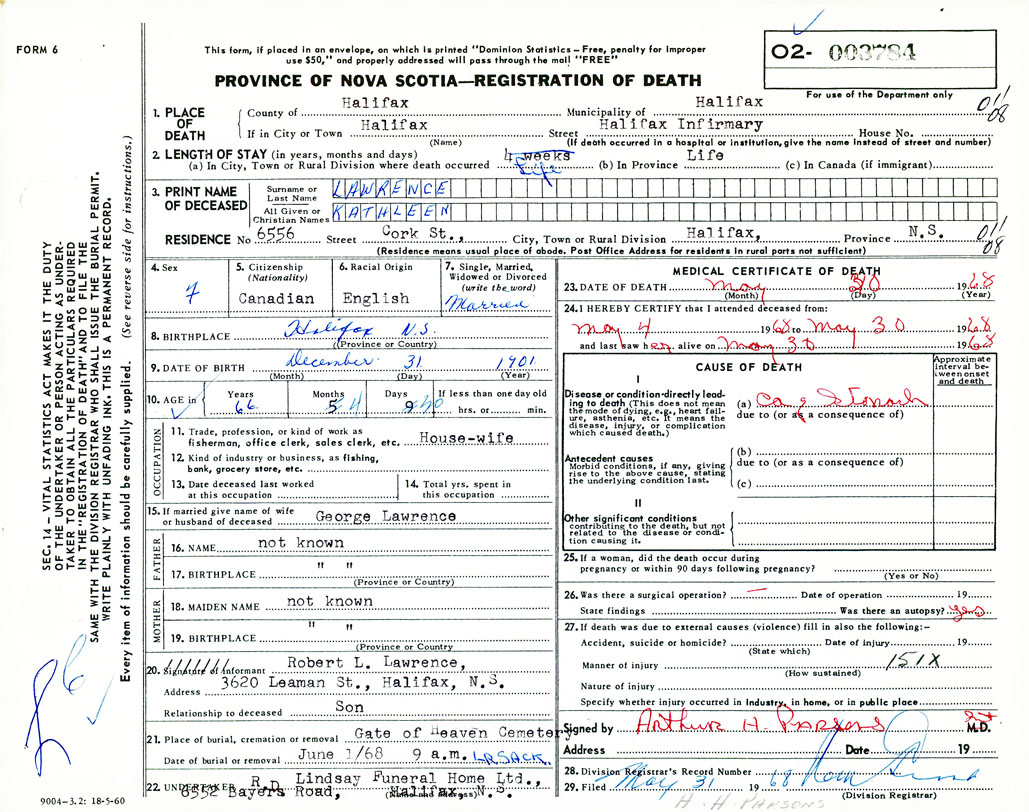 FORM 6
This form, if placed in an envelope, on which is printed "Dominion Statistics – Free, penalty for improper
use $50," and properly addressed will pass through the mail "FREE"
PROVINCE OF NOVA SCOTIA—REGISTRATION OF DEATH
O2- 003784
For use of the Department only
011
08
1. PLACE OF DEATH
County of Halifax Municipality of Halifax
If in City or Town Halifax Street Halifax Infirmary House No.
(Name) (If death occurred in a hospital or institution, give the name instead of street and number)
2. LENGTH OF STAY (in years, months and days)
(a) In City, Town or Rural Division where death occurred 4 weeks Life (b) In Province Life (c) In Canada (if immigrant)
3. PRINT NAME OF DECEASED
Surname or Last Name LAWRENCE
All Given or Christian Names KATHLEEN
RESIDENCE No 6556 Street Cork St., City, Town or Rural Division Halifax, Province N.S. 011
08
(Residence means usual place of abode. Post Office Address for residents in rural parts not sufficient)
4. Sex F
5. Citizenship (Nationality) Canadian
6. Racial Origin English
7. Single, Married, Widowed or Divorced (write the word) Married
8. BIRTHPLACE Halifax N.S.
(Province or Country)
9. DATE OF BIRTH December 31 1901
(Month) (Day) (Year)
10. AGE in Years 66 Months 4 Days 30 If less than one day old hrs. or min.
OCCUPATION
11. Trade, profession, or kind of work as
fisherman, office clerk, sales clerk, etc. House-wife
12. Kind of industry or business, as fishing,
bank, grocery store, etc.
13. Date deceased last worked
at this occupation
14. Total yrs. spent in
this occupation
15. If married give name of wife
or husband of deceased George Lawrence
FATHER
16. NAME not known
17. BIRTHPLACE " "
(Province or Country)
MOTHER
18. MAIDEN NAME not known
19. BIRTHPLACE " "
(Province or Country)
20. Signature of Informant Robert L. Lawrence,
Address 3620 Leaman St., Halifax, N.S.
Relationship to deceased Son
21. Place of burial, cremation or removal Gate of Heaven Cemetery
Date of burial or removal June 1/68 9 a.m. LR SACK.
22. UNDERTAKER R.D. Lindsay Funeral Home Ltd.,
6552 Bayers Road, Halifax, N.S.
(Name and address)
MEDICAL CERTIFICATE OF DEATH
23. DATE OF DEATH May 30 1968
(Month) (Day) (Year)
24. I HEREBY CERTIFY that I attended deceased from:
May 4 1968 to May 30 1968
and last saw her alive on May 30 1968
CAUSE OF DEATH
Approximate interval between onset and death
I
Disease or condition directly leading to death (This does not mean
the mode of dying, e.g., heart failure, asthenia, etc. It means the
disease, injury, or complication
which caused death.)
(a) Ca of Stomach
due to (or as a consequence of)
Antecedent causes
Morbid conditions, if any, giving
rise to the above cause, stating
the underlying condition last.
(b)
due to (or as a consequence of)
(c)
II
Other significant conditions
contributing to the death, but not
related to the disease or condition causing it.
25. If a woman, did the death occur during
pregnancy or within 90 days following pregnancy?
(Yes or No)
26. Was there a surgical operation? — Date of operation 19
State findings Was there an autopsy? yes
27. If death was due to external causes (violence) fill in also the following:—
Accident, suicide or homicide? Date of injury 19
(State which)
Manner of injury 151X
(How sustained)
Nature of injury
Specify whether injury occurred in Industry, in home, or in public place
Signed by Arthur H. Parsons M.D.
Address Date 19
28. Division Registrar's Record Number
29. Filed May 31 19 68
(Division Registrar)
H. H. PARSONS
SEC. 14 – VITAL STATISTICS ACT MAKES IT THE DUTY
OF THE UNDERTAKER OR PERSON ACTING AS UNDERTAKER TO OBTAIN ALL THE PARTICULARS REQUIRED
IN THE "REGISTRATION OF DEATH" AND TO FILE THE
SAME WITH THE DIVISION REGISTRAR WHO SHALL ISSUE THE BURIAL PERMIT.
WRITE PLAINLY WITH UNFADING INK. THIS IS A PERMANENT RECORD.
Every item of information should be carefully supplied. (See reverse side for instructions.)
9004-3.2: 18-5-60